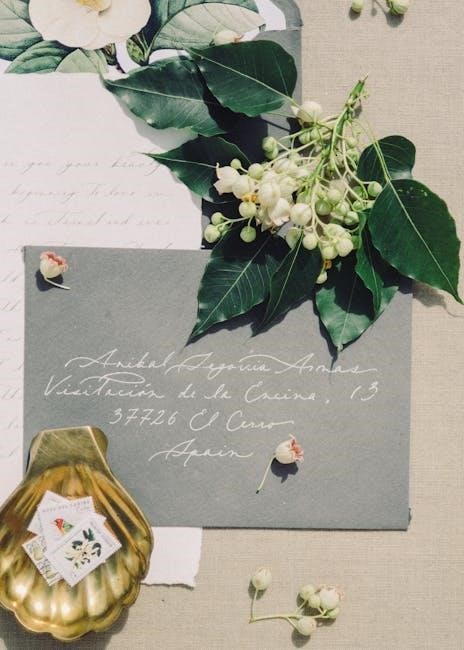 see you your beauty
beginning to love
is eternal and
Anibal Segovia Armas
Visitación de la Encina, 13
37726 El Cerro
Spain